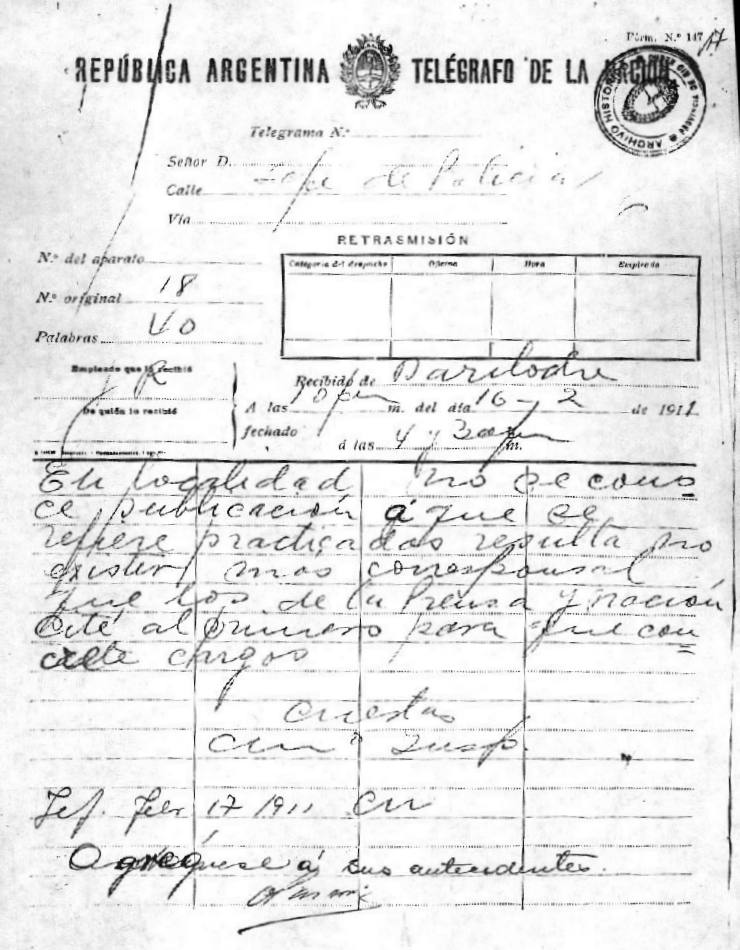 Form. N.º 147
17
REPÚBLICA ARGENTINA TELÉGRAFO DE LA NACION
ARCHIVO HISTO
PROVINCIA DE RIO
Telegrama N.º
Señor D. Jefe de Policia
Calle
Vía
RETRASMISIÓN
N.º del aparato
Categoría del despacho Oficina Hora Empleado
N.º original 18
Palabras 40
Empleado que lo recibió
De quién lo recibió
Recibido de Bariloche
A las 10 pm m. del día 16-2 de 1911
fechado á las 4 y 30 pm m.
En localidad no se cono
ce publicación á que se
refiere practicadas resulta no
existir mas corresponsal
que los de la Prensa y Nación
Cité al primero para que con
cargos
Cuestas
Com.º Insp.
Jef. Feb 17 1911
Agréguese á sus antecedentes.